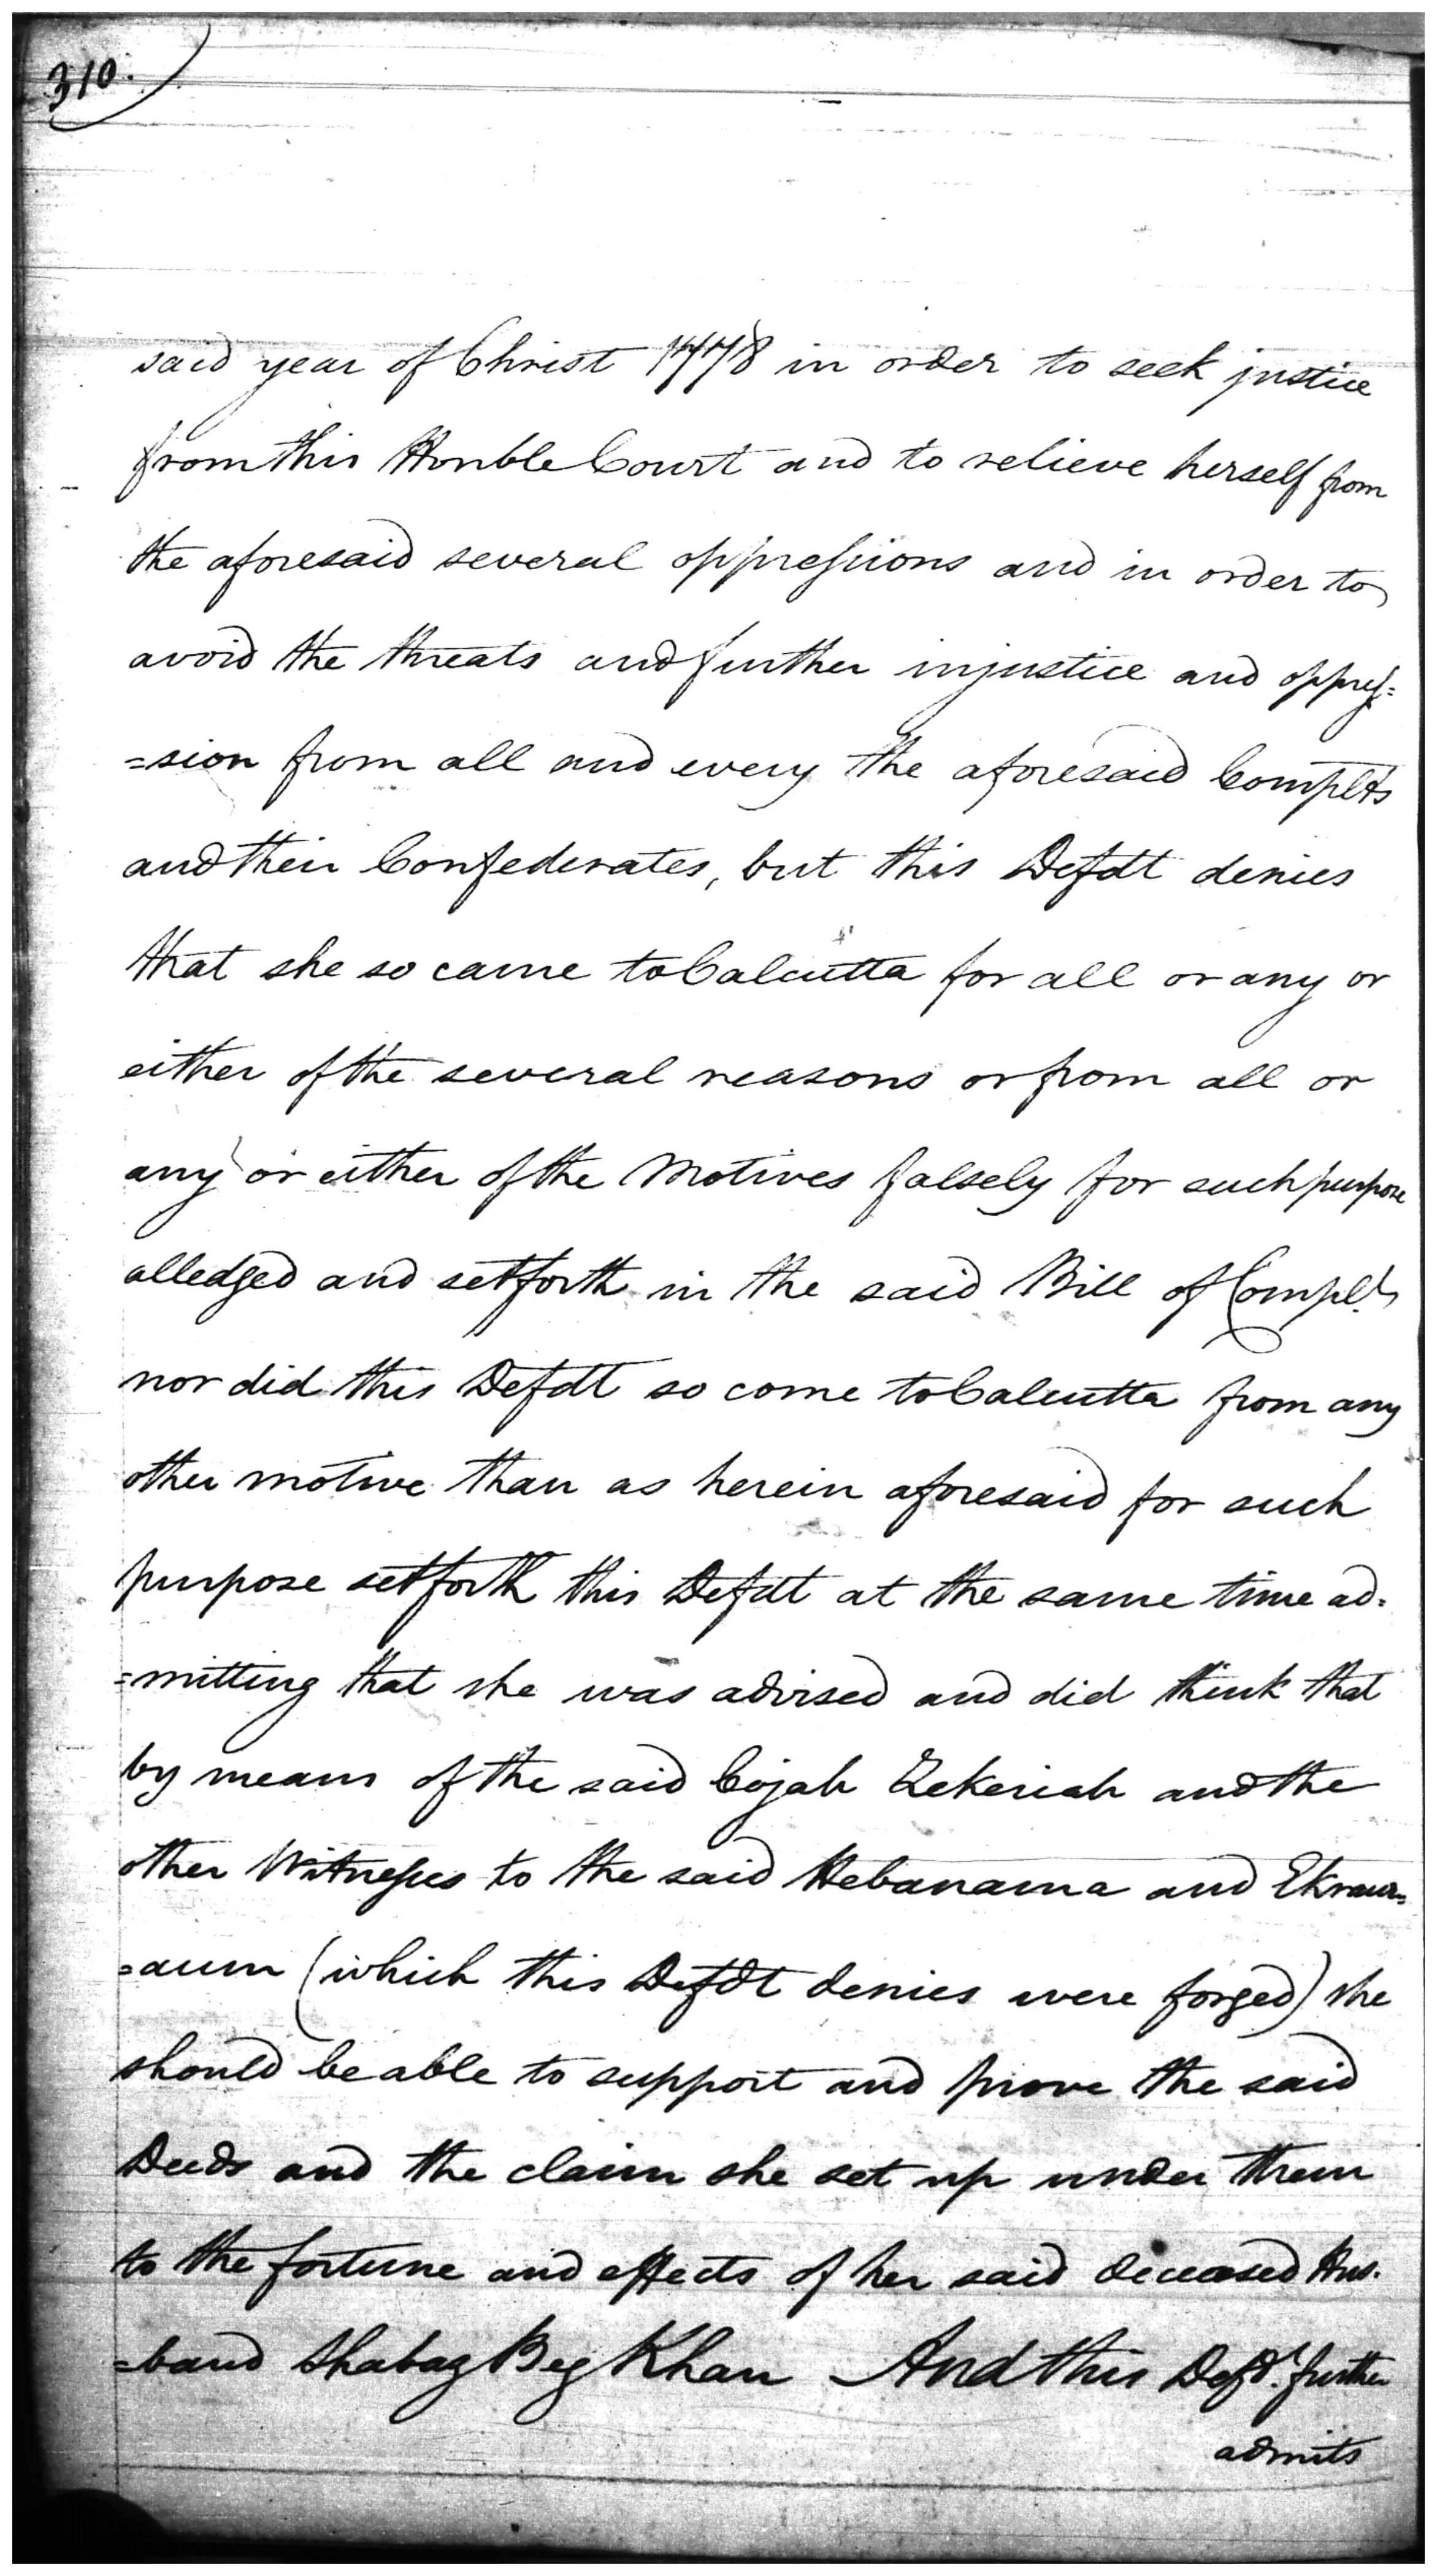 310.
said year of Christ 1778 in order to seek justice
from this Honble Court and to relieve herself from
the aforesaid several oppressions and in order to
avoid the threats and further injustice and oppres=
=sion from all and every the aforesaid Complts
and their Confederates, but this Defdt denies
that she so came to Calcutta for all or any or
either of the several reasons or from all or
any or either of the Motives falsely for such purpose
alledged and setforth in the said Bill of Complt
nor did this Defdt so come to Calcutta from any
other motive than as herein aforesaid for such
purpose setforth this Defdt at the same time ad=
=mitting that she was advised and did think that
by means of the said Cojah Zekeriah and the
other Witnesses to the said Hebanama and Ekrar=
=aum (which this Defdt denies were forged) she
should be able to support and prove the said
Deeds and the claim she set up under them
to the fortune and effects of her said deceased Hus=
=band Shabaz Beg Khan And this Defdt. further
admits